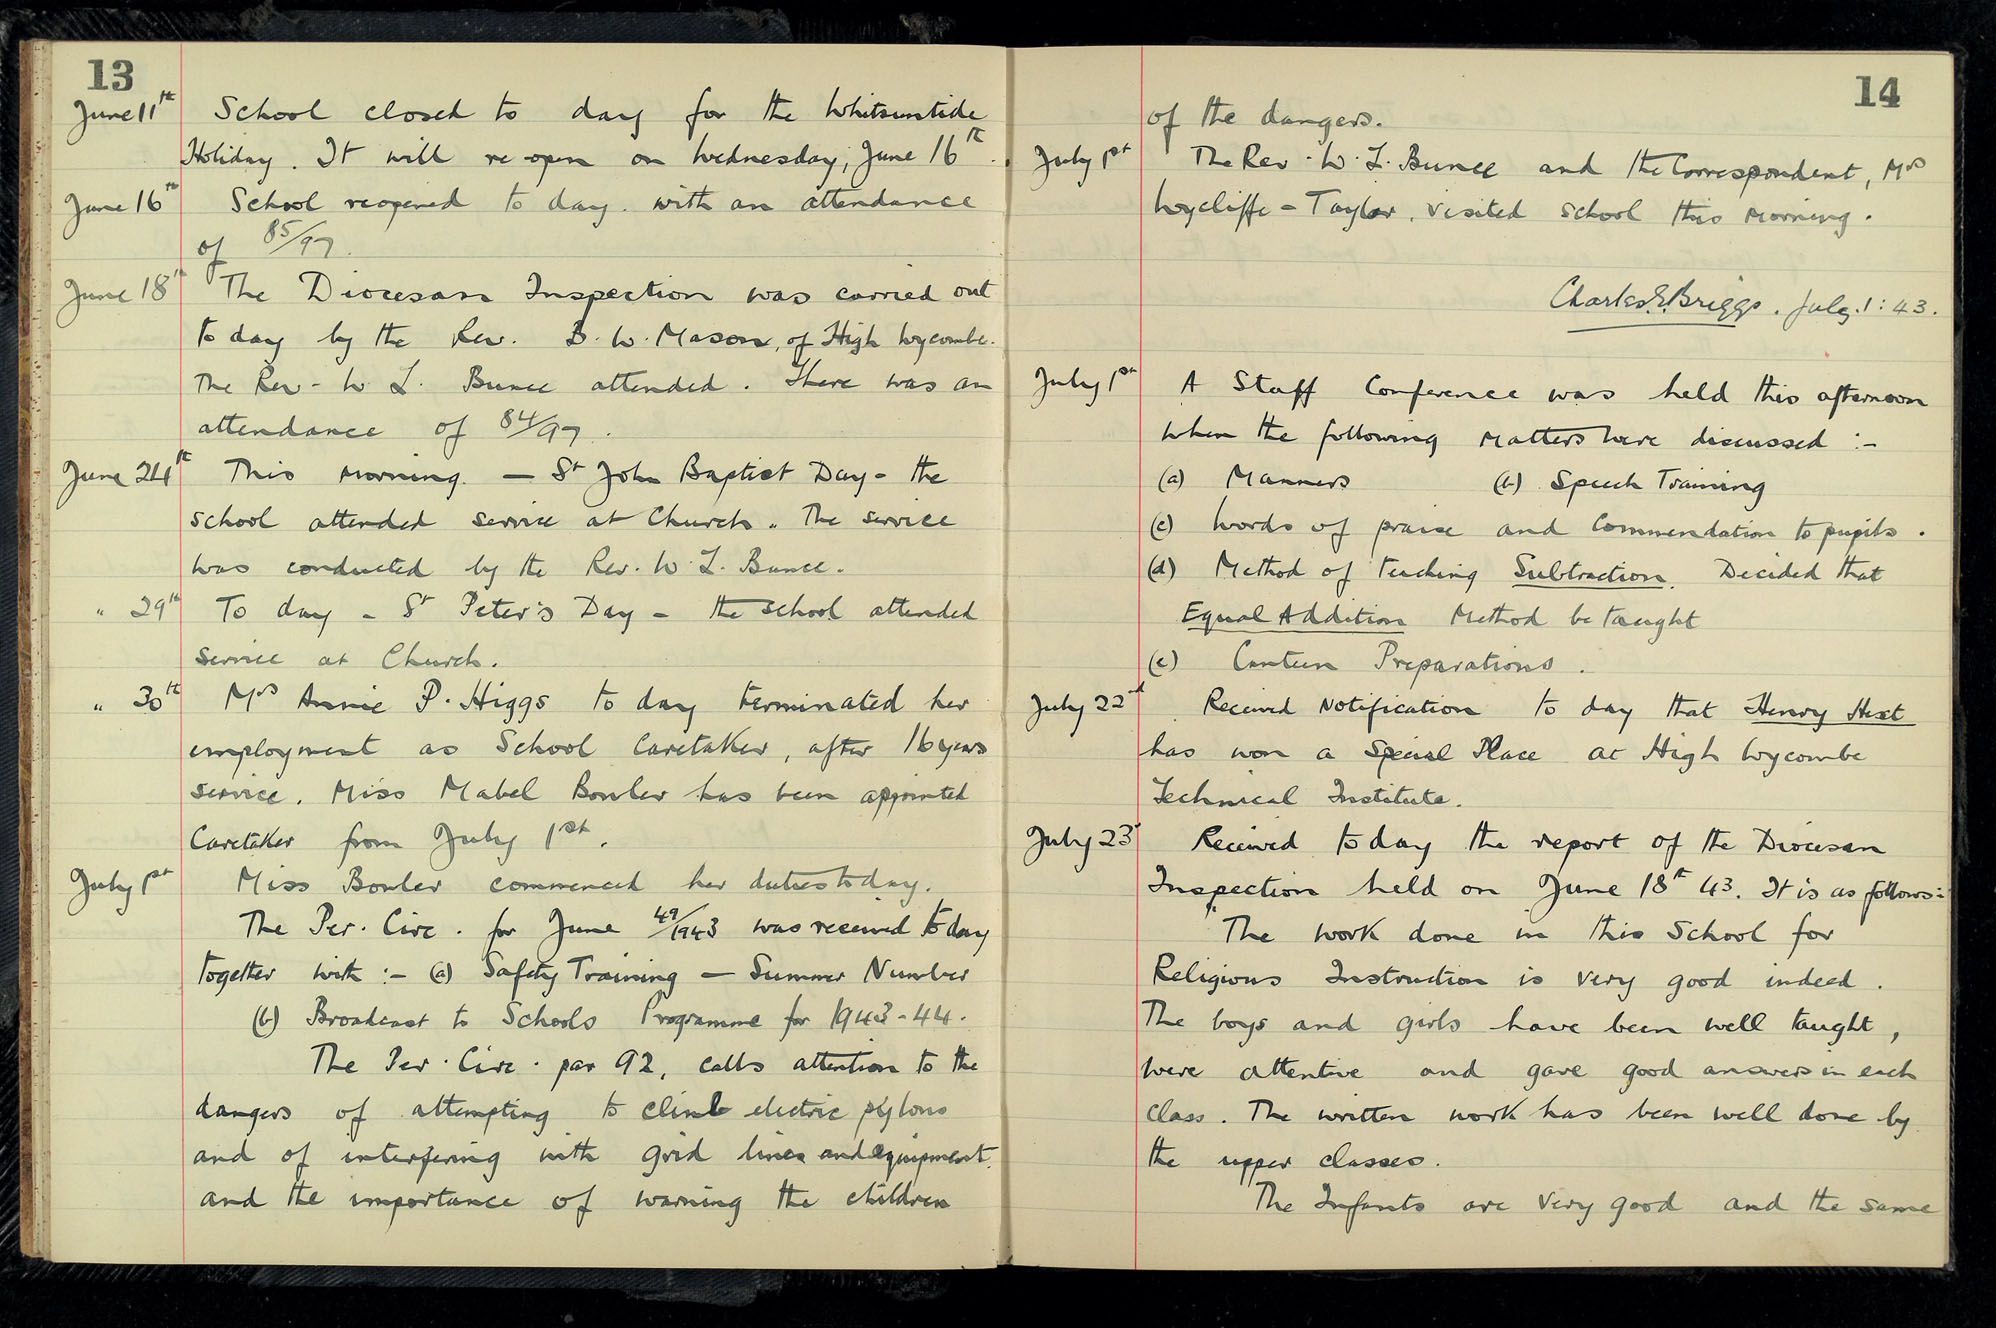 13
June 11th School closed to day for the Whitsuntide
Holiday. It will re-open on Wednesday, June 16th.
June 16th School reopened to day. with an attendance
of 85/97.
June 18th The Diocesan Inspection was carried out
to day by the Rev. B. W. Mason, of High Wycombe.
The Rev- W L. Bunce attended. There was an
attendance of 84/97.
June 24th This morning. — St John Baptist Day - the
school attended service at Church. The service
was conducted by the Rev. W. L. Bunce.
" 29th To day - St Peter's Day - the school attended
Service at Church.
" 30th Mrs Annie P. Higgs to day terminated her
employment as School Caretaker, after 16 years
service. Miss Mabel Bowler has been appointed
Caretaker from July 1st.
July 1st Miss Bowler commenced her duties to day.
The Per. Circ. for June 49/1943 was received to day
together with :- (a) Safety Training — Summer Number
(b) Broadcast to Schools Programme for 1943-44.
The Per. Circ. par 92, calls attention to the
dangers of attempting to climb electric pylons
and of interfering with grid lines and equipment.
and the importance of warning the children
14
of the dangers.
July 1st The Rev. W. L. Bunce and the Correspondent, Mrs
Wycliffe-Taylor, visited school this morning.
Charles E. Briggs. July. 1: 43.
July 1st A Staff Conference was held this afternoon
when the following matters were discussed :-
(a) Manners (b) Speech Training
(c) Words of praise and Commendation to pupils.
(d) Method of teaching Subtraction. Decided that
Equal Addition Method be taught
(e) Canteen Preparations.
July 22nd Received Notification to day that Henry Hext
has won a Special Place at High Wycombe
Technical Institute.
July 23rd Received to day the report of the Diocesan
Inspection held on June 18th 43. It is as follows:-
"The work done in this School for
Religious Instruction is very good indeed.
The boys and girls have been well taught,
were attentive and gave good answers in each
class. The written work has been well done by
the upper classes.
The Infants are very good and the same